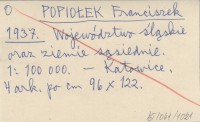 O POPIOŁEK Franciszek
1937. Województwo śląskie
oraz ziemie sąsiednie.
1:100 000. – Katowice.
4 ark. po cm 96 x 122.